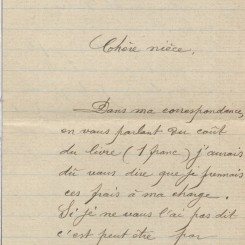 Chère nièce,
Dans ma correspondance,
en vous parlant du coût
du livre (1 franc) j'aurais
dû vous dire que je prennais
ces frais à ma charge.
Si je ne vous l'ai pas dit
c'est peut être par